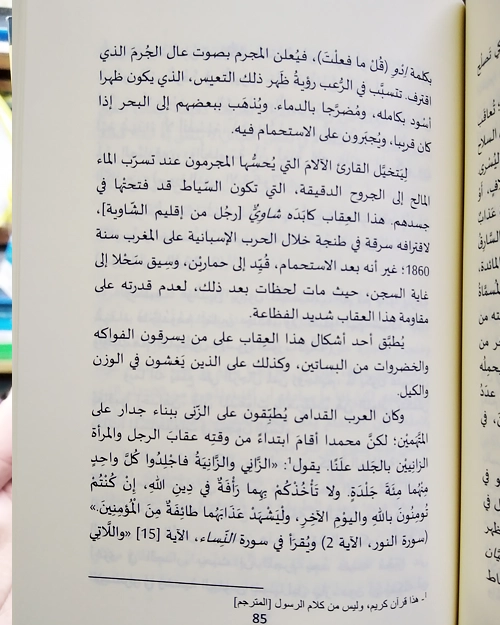 بكلمة إدُو (قُلْ ما فعلْتَ)، فيُعلن المجرم بصوت عال الجُرمَ الذي
اقترف. تتسبَّب في الرُّعب رؤيةُ ظَهر ذلك التعيس، الذي يكون ظهرا
أسْود بكامله، ومُضرَّجا بالدماء. ويُذهَب ببعضهم إلى البحر إذا
كان قريبا، ويُجبَرون على الاستحمام فيه.
لِيَتخيَّل القارئ الآلامَ التي يُحسُّها المجرمون عند تسرّب الماء
المالح إلى الجروح الدقيقة، التي تكون السِّياط قد فتحتْها في
جسدهم. هذا العِقاب كابَدَه شاويٌّ [رجُل من إقليم الشّاوية]،
لاقترافه سرقة في طنجة خلال الحرب الإسبانية على المغرب سنة
1860؛ غير أنه بعد الاستحمام، قُيِّد إلى حماريْن، وسِيق سَحْلا إلى
غاية السجن، حيث مات لحظات بعد ذلك، لعدم قدرته على
مقاومة هذا العقاب شديد الفظاعة.
يُطبَّق أحد أشكال هذا العِقاب على من يسرقون الفواكه
والخضروات من البساتين، وكذلك على الذين يَغشون في الوزن
والكيل.
وكان العرب القدامى يُطبِّقون على الزّنى ببناء جدار على
المتَّهميْن؛ لكنَّ محمدا أقامَ ابتداءً من وقته عقابَ الرجل والمرأة
الزانِيَيْن بالجَلد علَنًا. يقول¹: «الزَّانِي والزَّانِيَةُ فاجْلِدُوا كُلَّ واحِدٍ
مِنْهُما مِئَةَ جَلدَةٍ. ولا تَأْخُذْكُمْ بِهِما رَأْفَةٌ في دِينِ اللهِ، إنْ كُنْتُمْ
تُومِنُونَ باللهِ واليومِ الآخِرِ، ولْيَشْهَدْ عَذابَهُما طائفَةٌ مِنَ المُؤْمِنِينَ.»
(سورة النور، الآية 2) ويُقرَأ في سورة النّساء، الآية [15] «واللَّاتِي
¹- هذا قرآن كريم، وليس من كلام الرسول [المترجم]
85